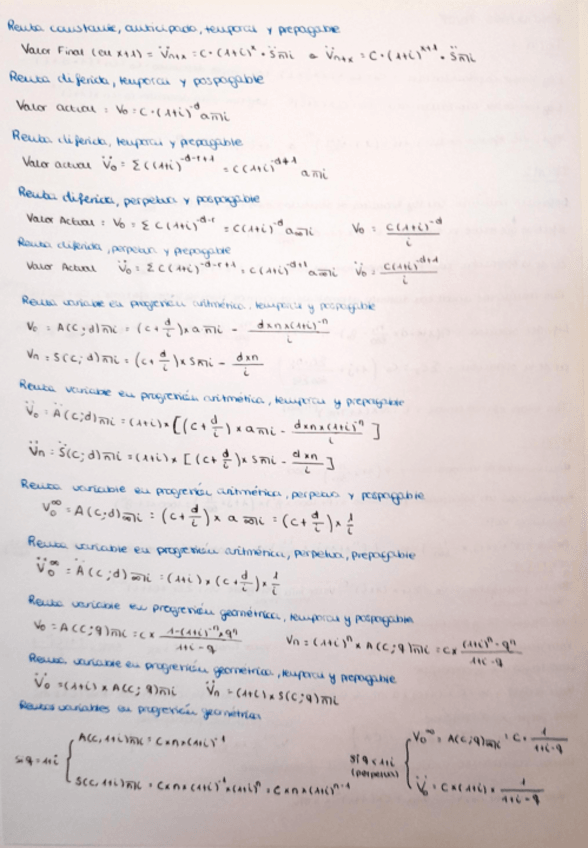 Renta constante, anticipada, temporal y prepagable
Valor Final (en x+1) = V̈n+x = C · (1+i)^x · s̈n̅|i o V̈n+x = C · (1+i)^x+1 · s̈n̅|i
Renta diferida, temporal y pospagable
Valor actual : V₀ = C · (1+i)^-d an̅|i
Renta diferida, temporal y prepagable
Valor actual V̈₀ = Σ C(1+i)^-d-r+1 = C(1+i)^-d+1 an̅|i
Renta diferida, perpetua y pospagable
Valor Actual : V₀ = Σ C(1+i)^-d-r = C(1+i)^-d a∞̅|i V₀ = C(1+i)^-d / i
Renta diferida, perpetua y prepagable
Valor Actual V̈₀ = Σ C(1+i)^-d-r+1 = C(1+i)^-d+1 a∞̅|i V̈₀ = C(1+i)^-d+1 / i
Renta variable en progresión aritmética, temporal y pospagable
V₀ = A(c;d)n̅|i = (c + d/i) × an̅|i - d×n×(1+i)^-n / i
Vn = S(c;d)n̅|i = (c + d/i) × sn̅|i - d×n / i
Renta variable en progresión aritmética, temporal y prepagable
V̈₀ = Ä(c;d)n̅|i = (1+i) × [(c + d/i) × an̅|i - d×n×(1+i)^-n / i ]
V̈n = S̈(c;d)n̅|i = (1+i) × [(c + d/i) × sn̅|i - d×n / i ]
Renta variable en progresión aritmética, perpetua y pospagable
V₀^∞ = A(c;d)∞̅|i = (c + d/i) × a∞̅|i = (c + d/i) × 1/i
Renta variable en progresión aritmética, perpetua, prepagable
V̈₀^∞ = Ä(c;d)∞̅|i = (1+i) × (c + d/i) × 1/i
Renta variable en progresión geométrica, temporal y pospagable
V₀ = A(c;q)n̅|i = c × 1-(1+i)^-n × q^n / 1+i-q Vn = (1+i)^n × A(c;q)n̅|i = c × (1+i)^n - q^n / 1+i-q
Renta variable en progresión geométrica, temporal y prepagable
V̈₀ = (1+i) × A(c;q)n̅|i V̈n = (1+i) × S(c;q)n̅|i
Rentas variables en progresión geométrica
si q = 1+i { A(c, 1+i)n̅|i = c×n×(1+i)^-1
S(c, 1+i)n̅|i = c×n×(1+i)^-1 × (1+i)^n = c×n×(1+i)^n-1
si q < 1+i (perpetua) { V₀^∞ = A(c;q)∞̅|i = c · 1 / 1+i-q
V̈₀ = c × (1+i) × 1 / 1+i-q